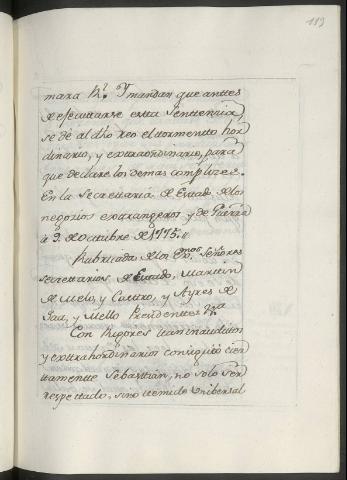 113
mara Rl. Y mandan que anttes
de ejecuttarse estta Senttencia,
se dè al dho reo el tormentto hor
dinario, y exttraordinario, para
que declare los demas complizes.
En la Secrettaria de Esttado de los
negozios exttrangeros y de Guerra
à 9. de Octtubre de 1775.
Rubricada de los Exmos. Señores
secrettarios de Esttado, Marttin
de Melo, y Casttro, y Ayres de
Saa, y Mello Presidenttes &a
Con Rigores ttan inaudittos
y exttrahordinarios consiguiò cier
ttamentte Sebasttian, no solo ser
respecttado, sino ttemido Unibersal